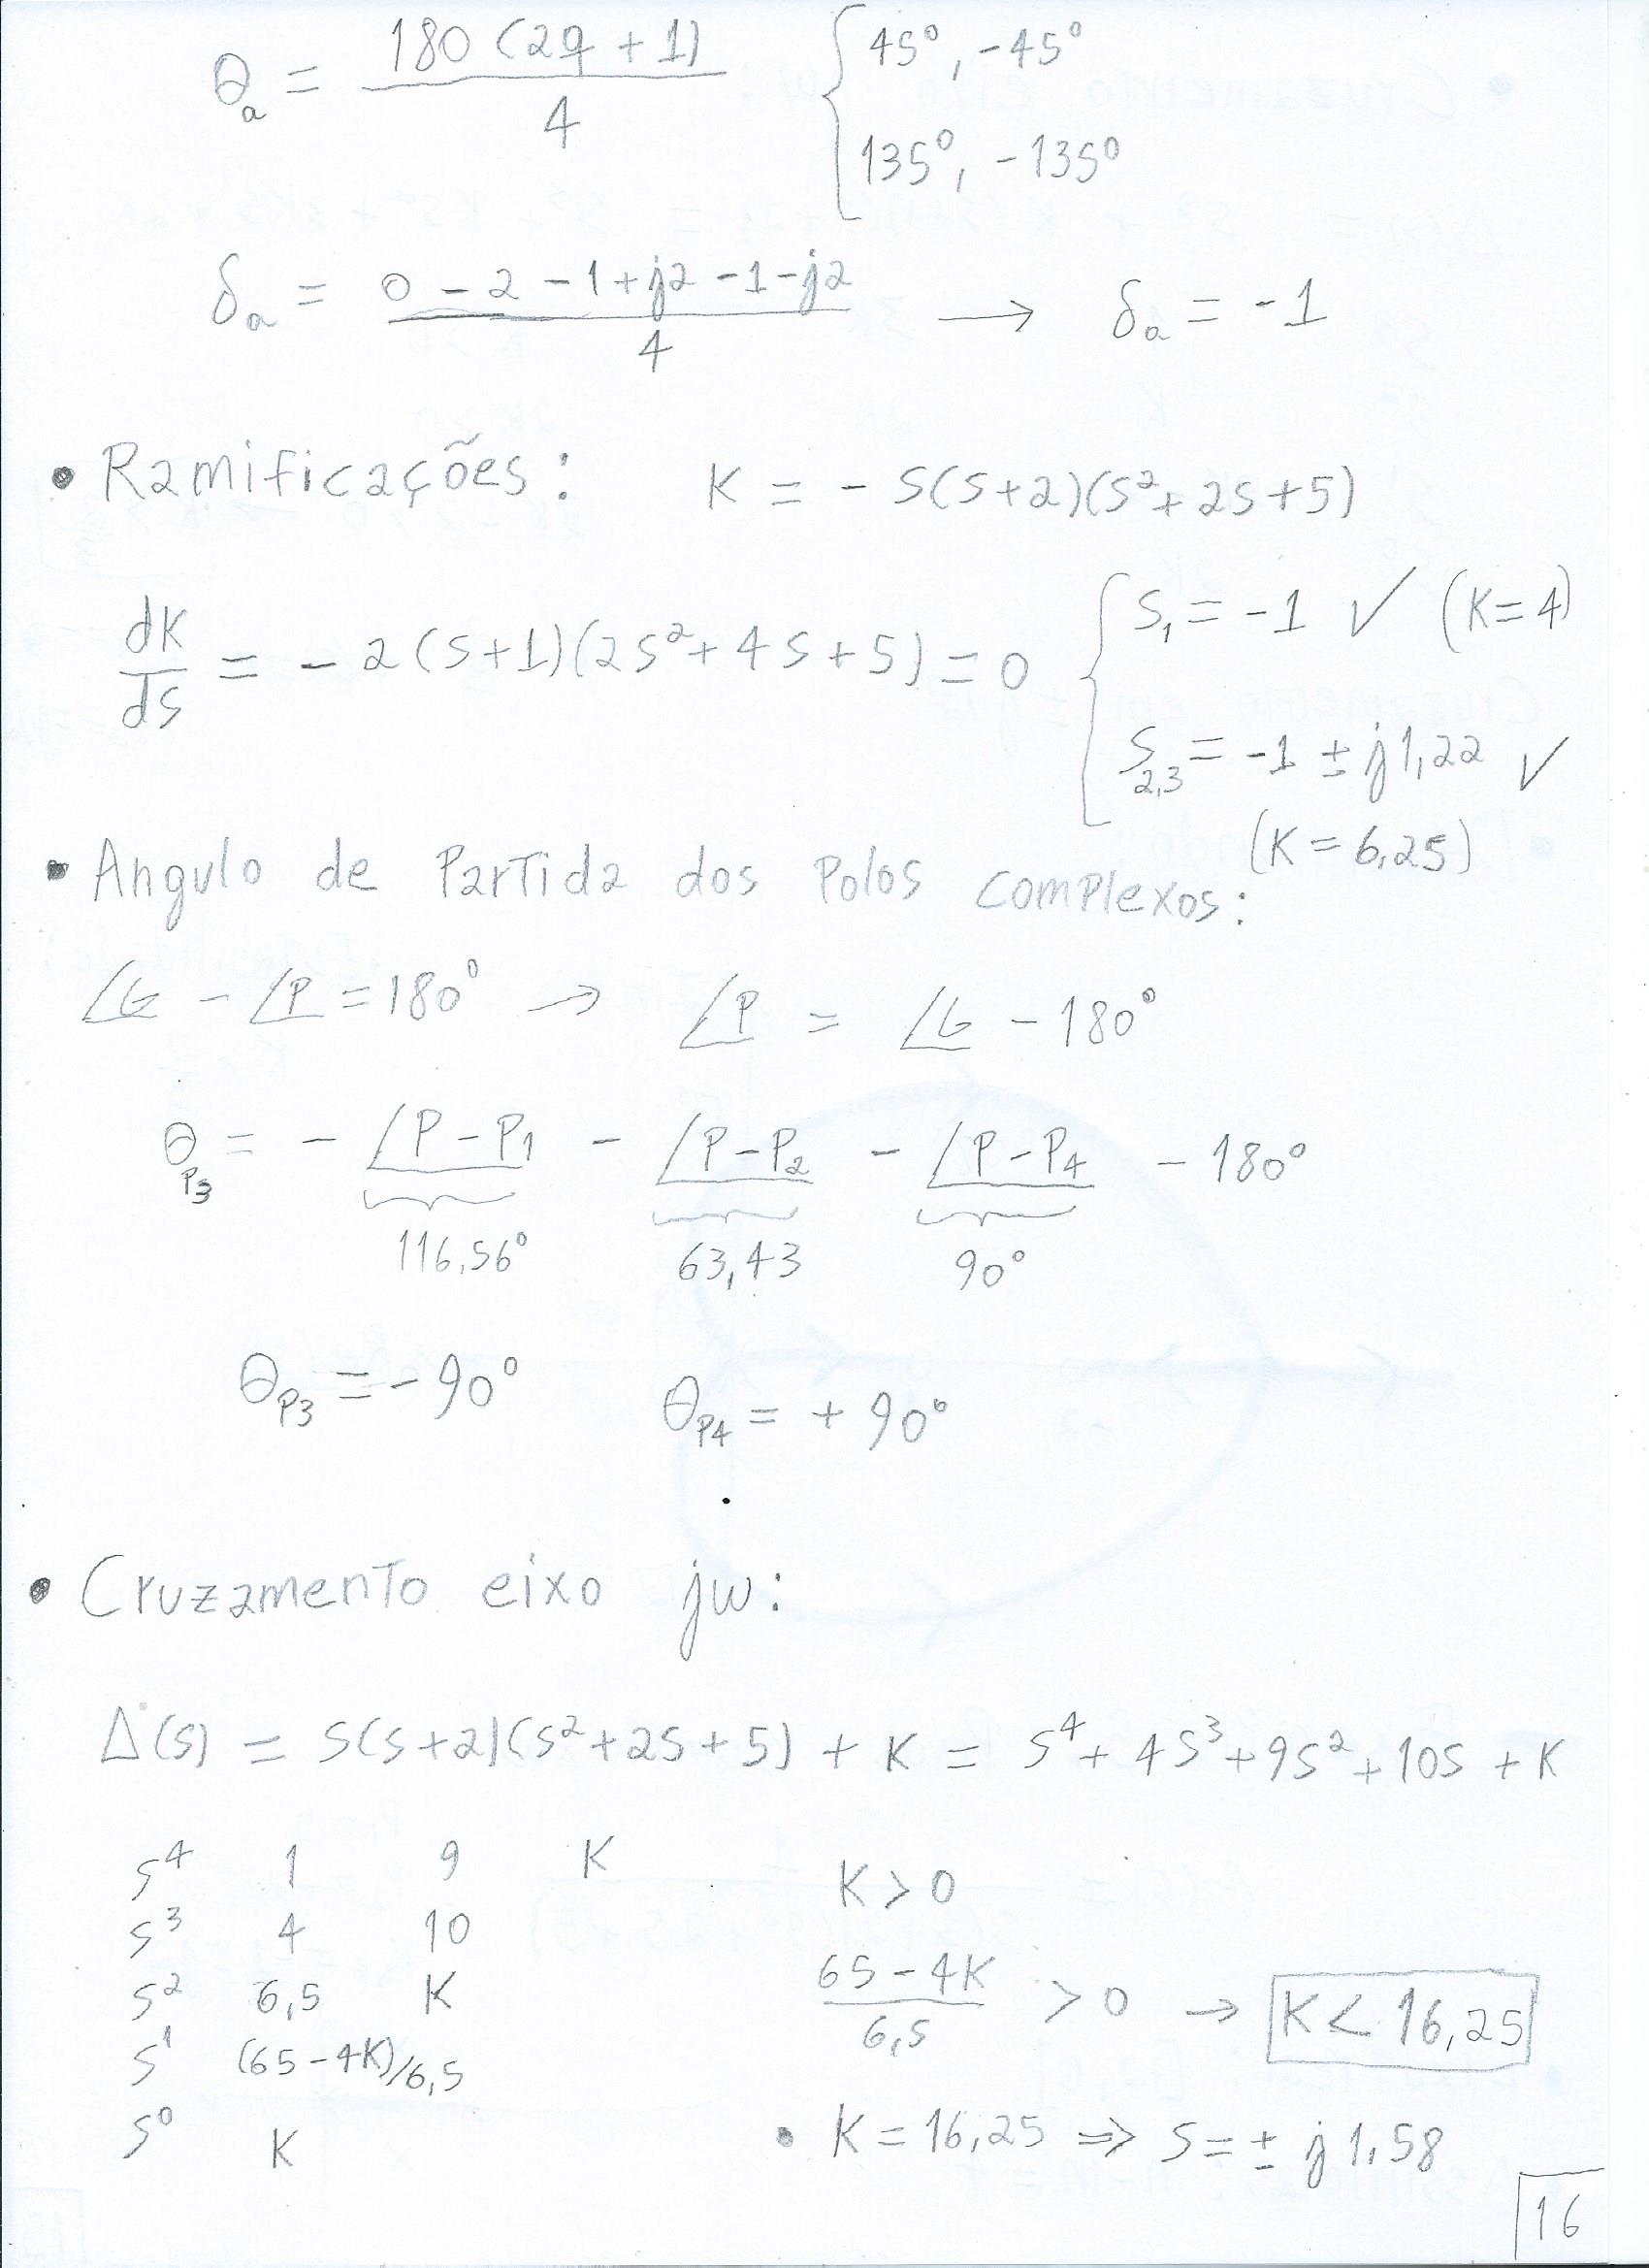 θa = 180 (2q + 1) / 4 { 45°, -45°
135°, -135°
δa = 0 - 2 - 1 + j2 - 1 - j2 / 4 → δa = -1
• Ramificações: K = - S(S+2)(S²+2S+5)
dK/dS = - 2(S+1)(2S²+4S+5) = 0 { S1 = -1 ✓ (K=4)
S2,3 = -1 ± j1,22 ✓
(K = 6,25)
• Angulo de Partida dos Polos complexos:
∠G - ∠P = 180° → ∠P = ∠G - 180°
θP3 = - ∠P-P1 - ∠P-P2 - ∠P-P4 - 180°
116,56° 63,43 90°
θP3 = -90° θP4 = +90°
• Cruzamento eixo jw:
Δ(S) = S(S+2)(S²+2S+5) + K = S⁴+4S³+9S²+10S+K
S⁴ 1 9 K
S³ 4 10
S² 6,5 K
S¹ (65-4K)/6,5
S⁰ K
K > 0
65-4K / 6,5 > 0 → K < 16,25
• K = 16,25 ⇒ S = ± j1,58
16